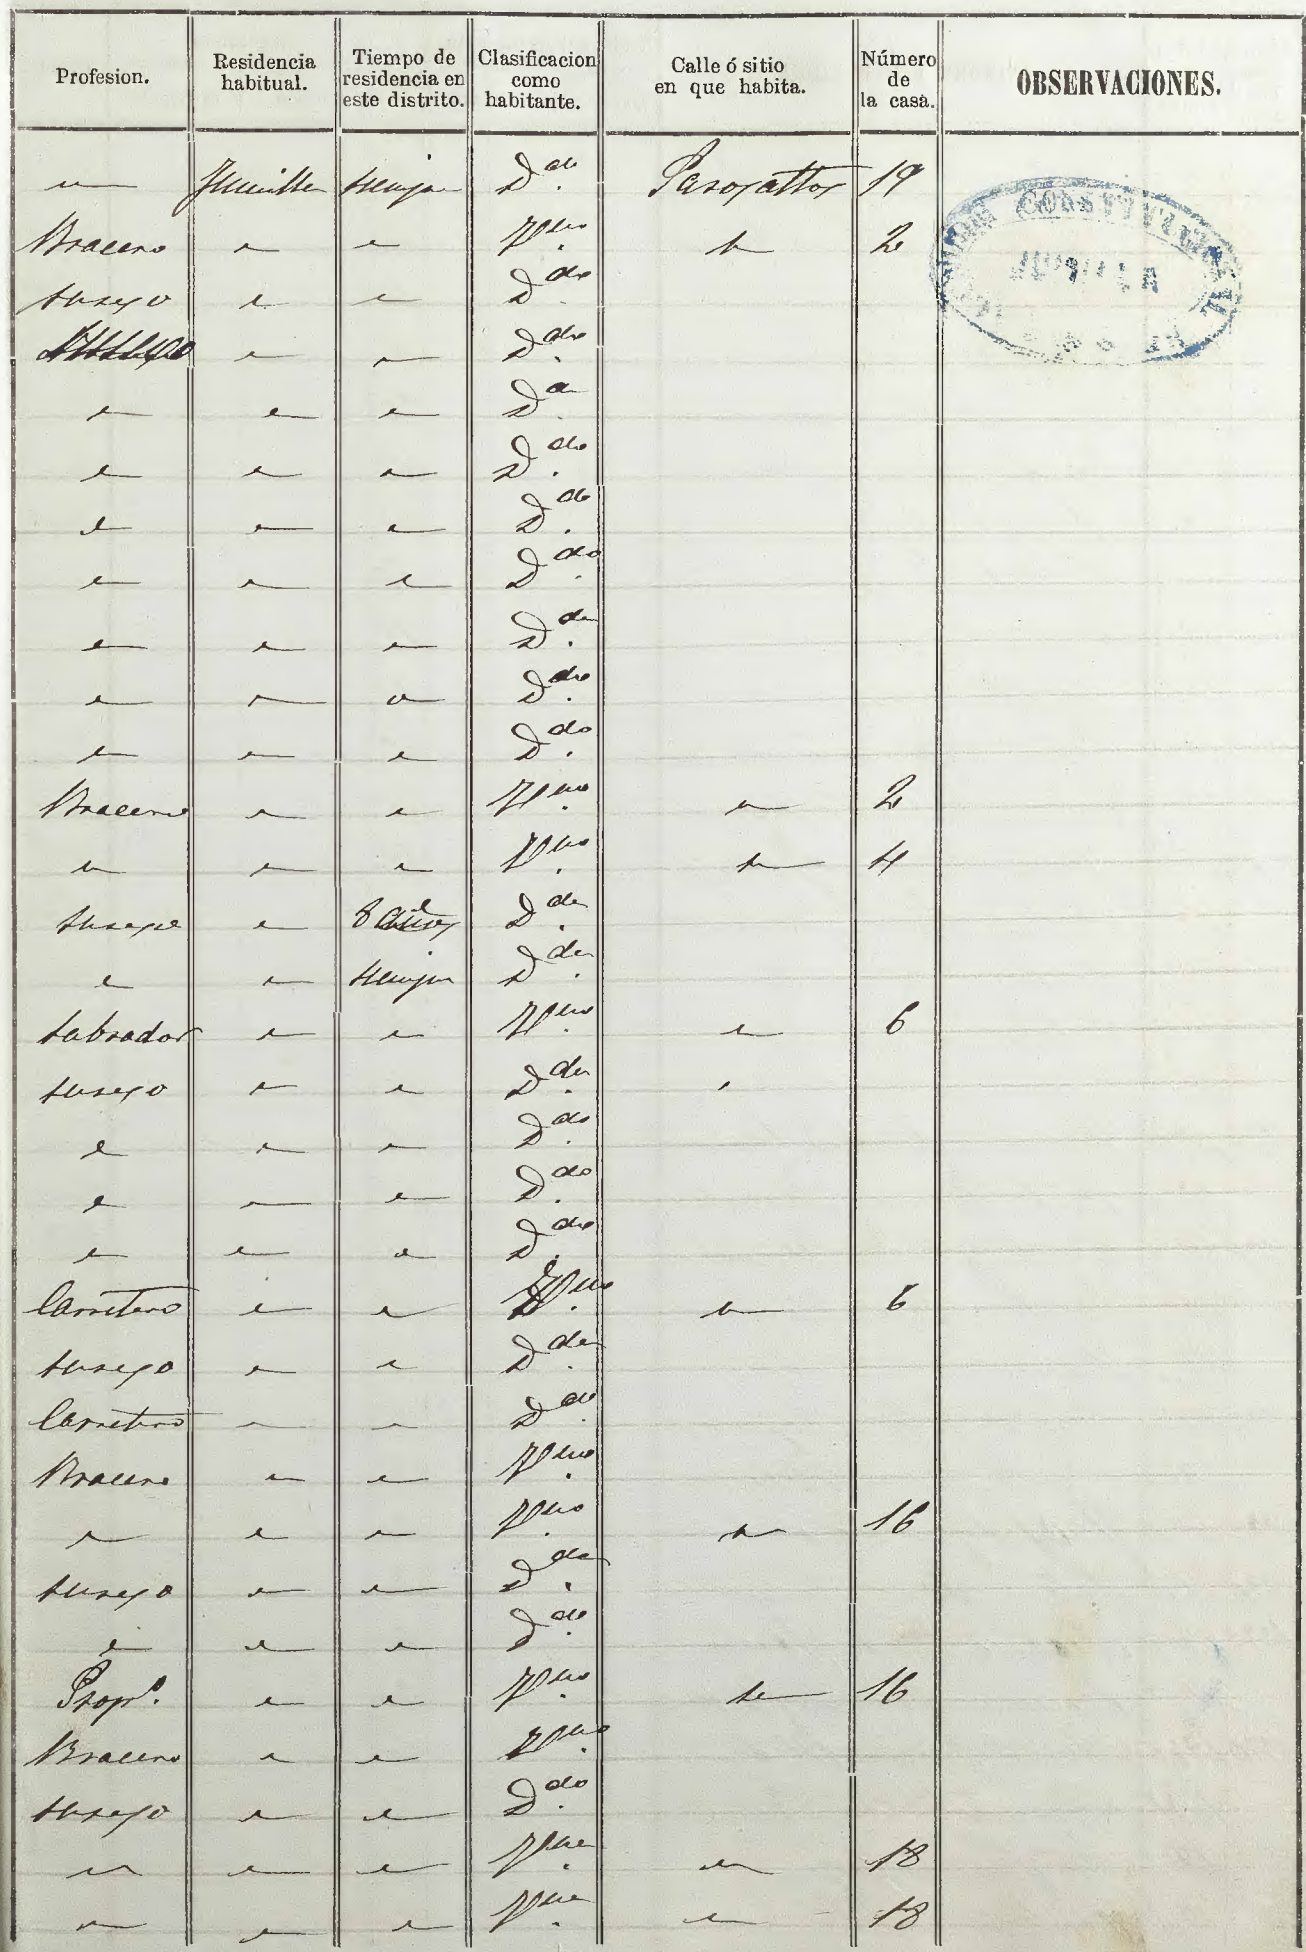 Profesion. Residencia habitual. Tiempo de residencia en este distrito. Clasificacion como habitante. Calle ó sitio en que habita. Número de la casa. OBSERVACIONES.
" Jumilla siempre D.da 19
Bracero " " V.no " 2
su sexo " " D.da
" " D.do
" " " D.a
" " " D.do
" " " D.do
" " " D.do
" " " D.da
" " " D.do
" " " D.do
Bracero " " V.no " 2
" " " V.no " 4
su sexo " 8 años D.da
" " siempre D.da
Labrador " " V.no " 6
su sexo " " D.da "
" " " D.do
" " " D.do
" " " D.do
Carretero " " V.no " 6
su sexo " " D.da
Carretero " " D.do
Bracero " " V.no
" " " V.no " 16
su sexo " " D.da
" " " D.da
Prop.o " " V.no " 16
Bracero " " V.no
su sexo " " D.da
" " " V.na " 18
" " " V.na " 18